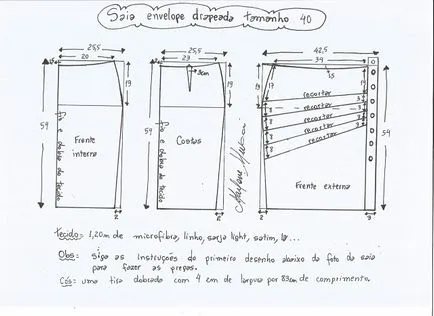 Saia envelope drapeada tamanho 40
25,5
20
25,5
23
3cm
42,5
39
1,5
19
19
19
17
recortar
recortar
recortar
recortar
recortar
3
3
8
8
8
59
59
59
Frente
interna
dobra do tecido
Costas
dobra do tecido
Frente externa
2
2
2
3
Tecido= 1,20m de microfibra, linho, sarja light, setim,
Obs: Siga as instruções do primeiro desenho abaixo da foto da saia
para fazer as pregas.
Cós: uma tira dobrada com 4 cm de largura por 89cm de comprimento.